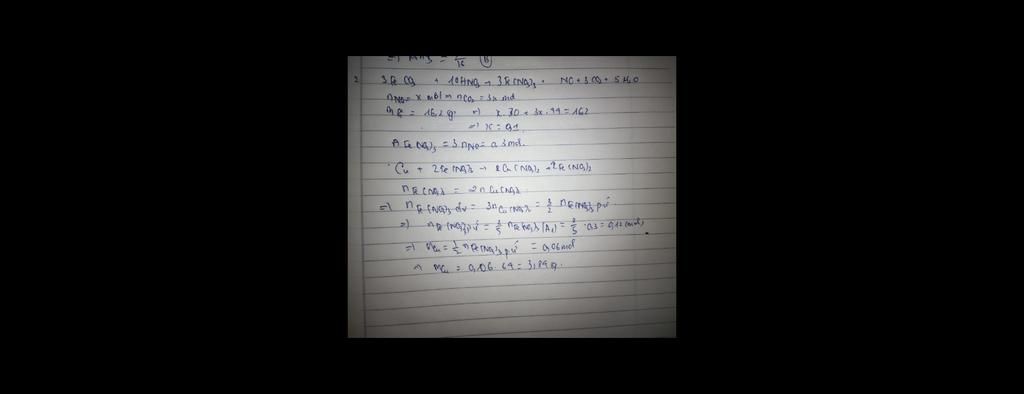 2. 3FeCO3 + 10HNO3 → 3Fe(NO3)3 + NO + 3CO2 + 5H2O
nNO = x mol → nCO2 = 3x mol
= 16,2 g → x.30 + 3x.44 = 16,2
=> x = 0,1
Fe(NO3)3 = 3nNO = 0,3 mol.
Cu + 2Fe(NO3)3 → Cu(NO3)2 + 2Fe(NO3)2
nFe(NO3)2 = 2nCu(NO3)2
=> nFe(NO3)3 dư = 3nCu(NO3)2 = 3/2 nFe(NO3)3 pư
=> nFe(NO3)3 pư = 2/5 nFe(NO3)3 = 2/5 . 0,3 = 0,12 (mol)
=> nCu = 1/2 nFe(NO3)3 pư = 0,06 mol
→ mCu = 0,06 . 64 = 3,84 g.